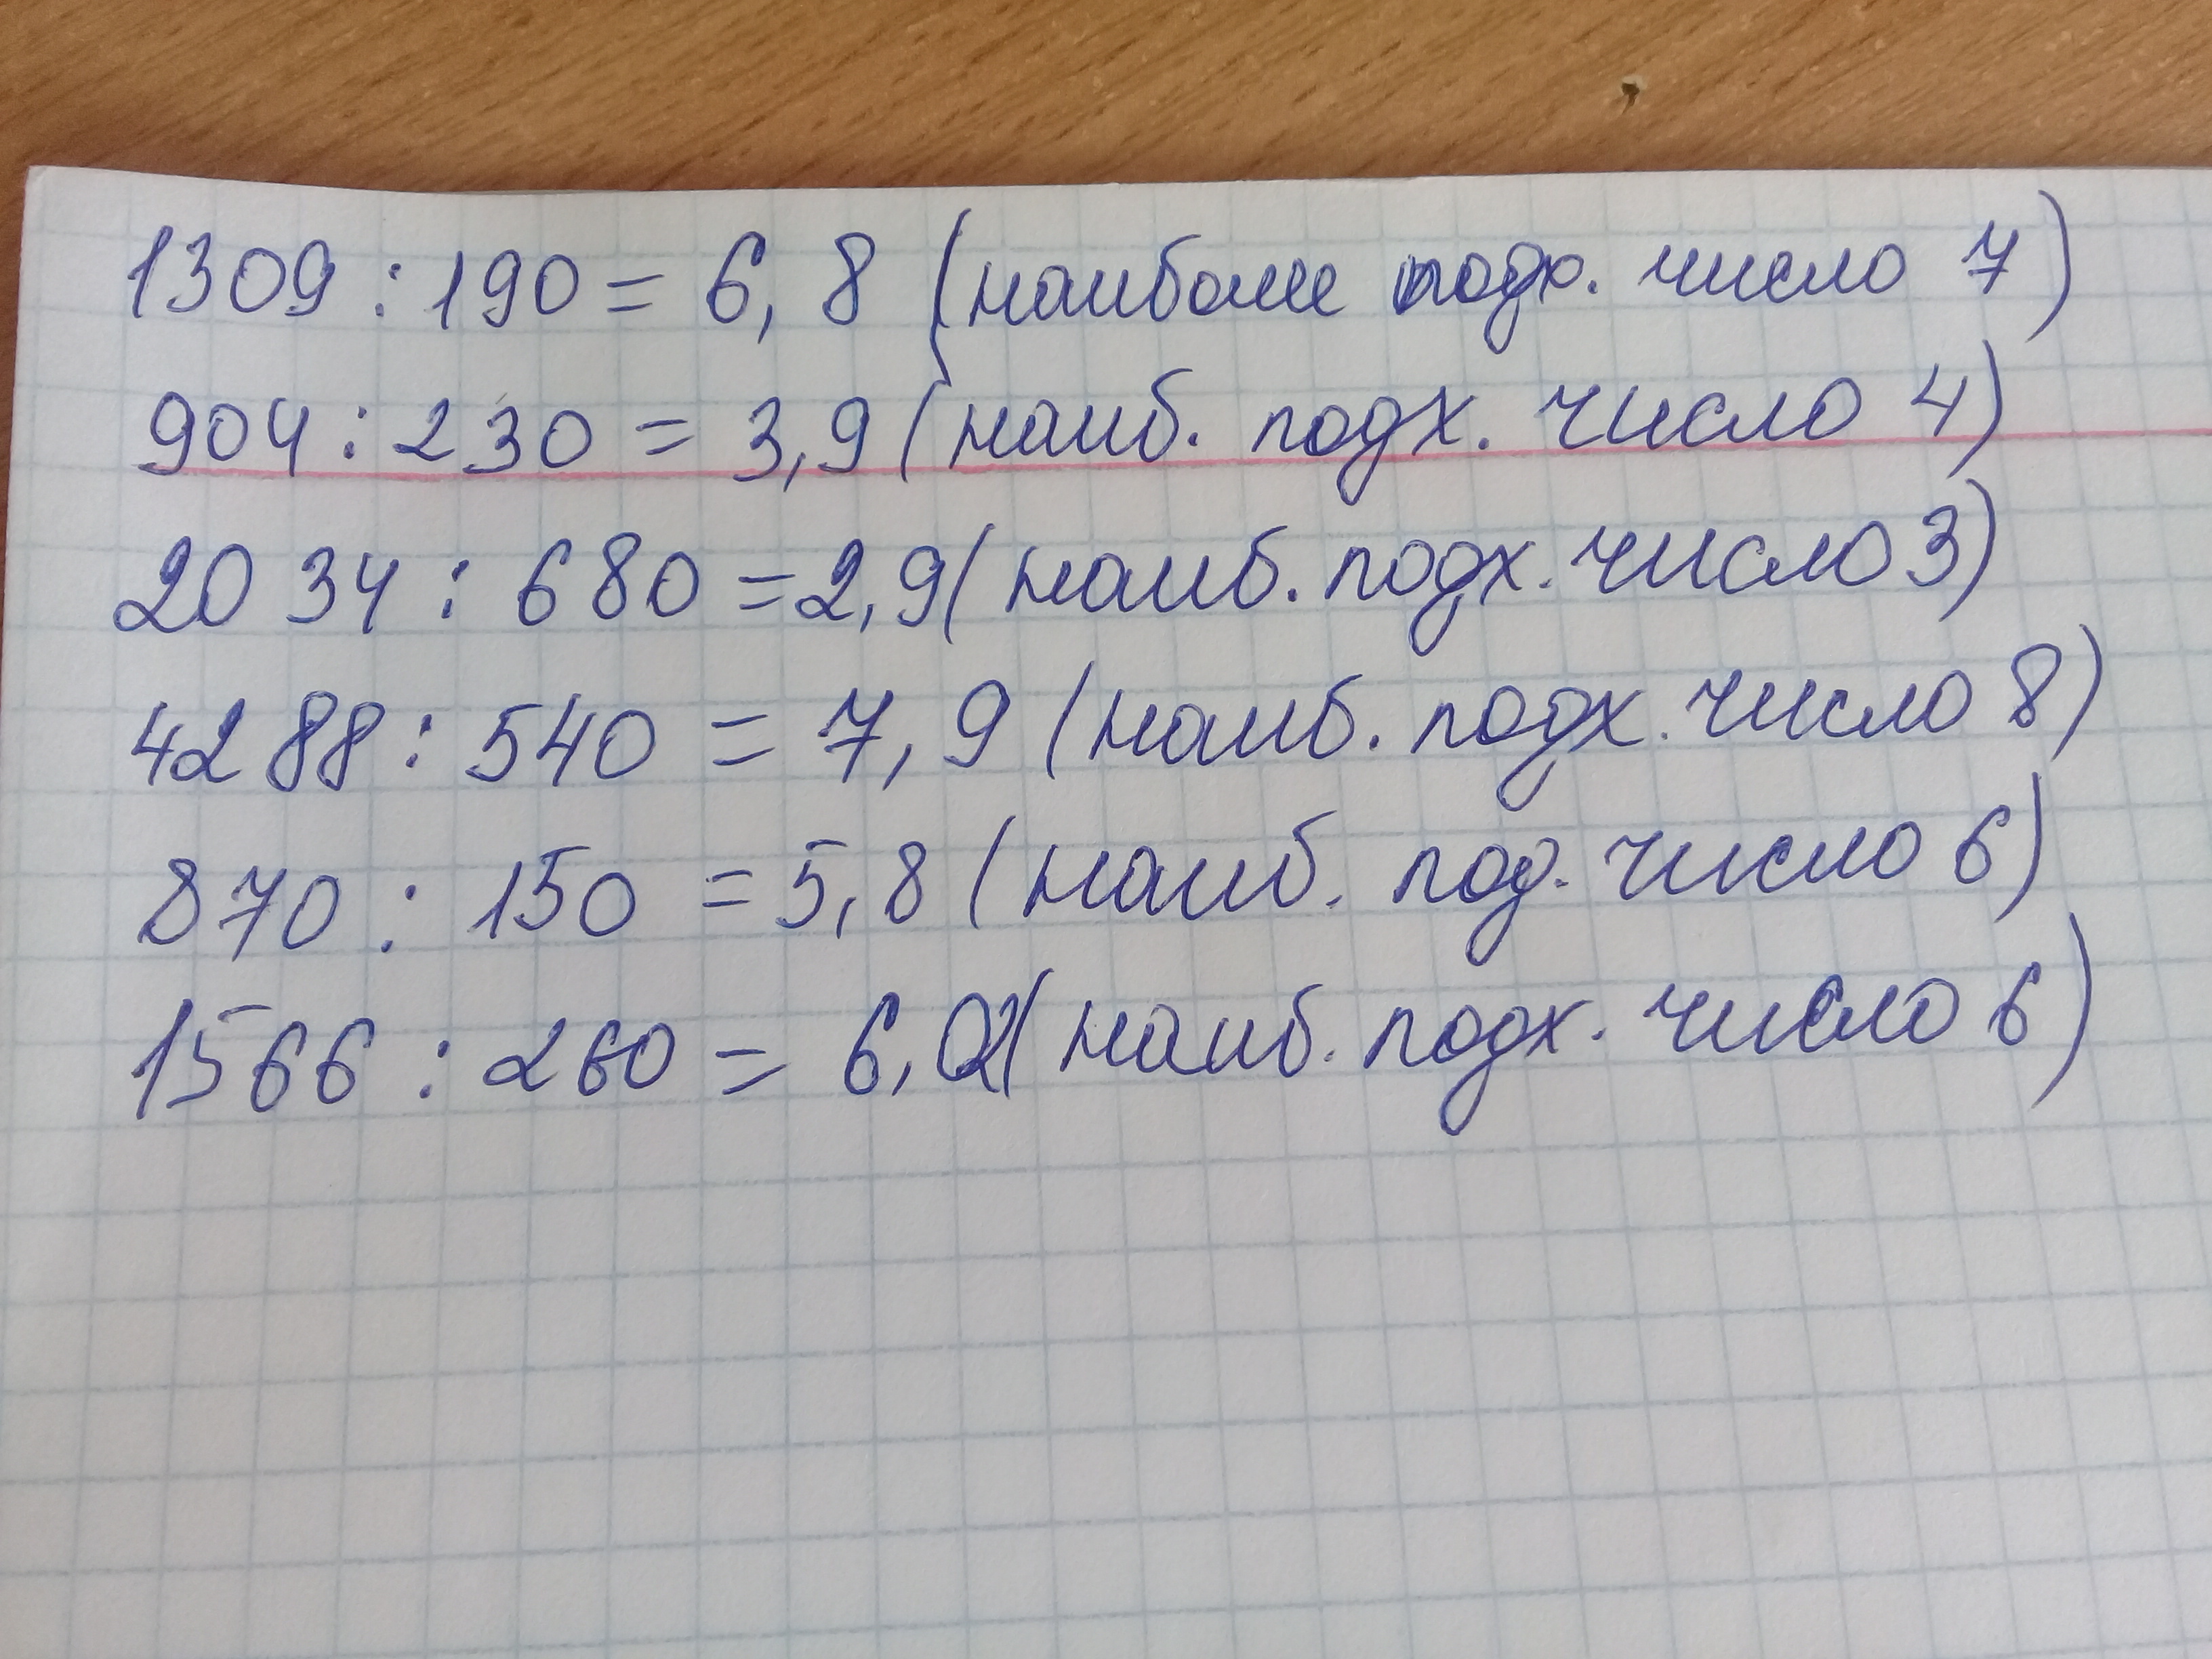 1309 : 190 = 6,8 (наиболее подх. число 7)
904 : 230 = 3,9 (наиб. подх. число 4)
2034 : 680 = 2,9 (наиб. подх. число 3)
4288 : 540 = 7,9 (наиб. подх. число 8)
870 : 150 = 5,8 (наиб. под. число 6)
1566 : 260 = 6,02 (наиб. подх. число 6)